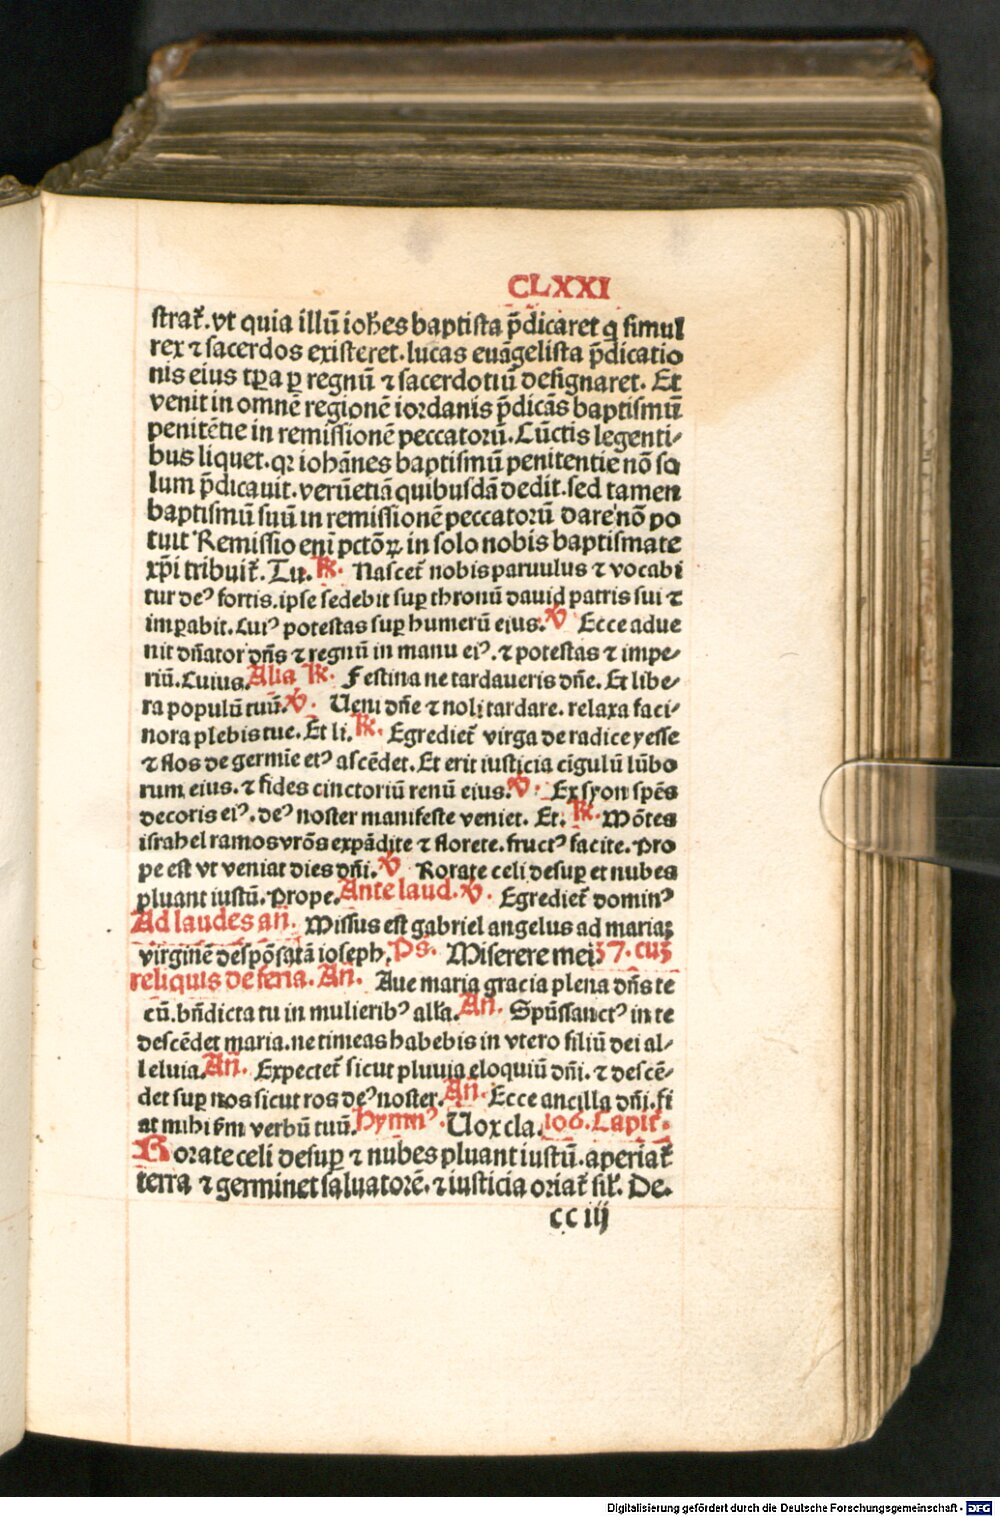 CLXXI
strat᷑. vt quia illū iohēs baptista p̄dicaret q simul
rex ⁊ sacerdos existeret. lucas euāgelista p̄dicatio
nis eius tꝑa ꝑ regnū ⁊ sacerdotiū designaret. Et
venit in omnē regionē iordanis p̄dicās baptismū
penitētie in remissionē peccatorū. Cūctis legenti⸗
bus liquet. qꝛ iohānes baptismū penitentie nō so
lum p̄dicauit. verūetiā quibusdā dedit. sed tamen
baptismū suū in remissionē peccatorū dare nō po
tuit Remissio eni᷑ pctōꝝ in solo nobis baptismate
xp̄i tribuit᷑. Tu. ℟. Nascet᷑ nobis paruulus ⁊ vocabi
tur deꝰ fortis. ipse sedebit suꝑ thronū dauid patris sui ⁊
imꝑabit. Cuiꝰ potestas suꝑ humerū eius. ℣ Ecce adue
nit dn̄ator dn̄s ⁊ regnū in manu eiꝰ. ⁊ potestas ⁊ impe⸗
riū. Cuius. Alia ℟. Festina ne tardaueris dn̄e. Et libe⸗
ra populū tuū. ℣. Ueni dn̄e ⁊ noli tardare. relaxa faci⸗
nora plebis tue. Et li. ℟. Egrediet᷑ virga de radice yesse
⁊ flos de germīe etꝰ ascēdet. Et erit iusticia cīgulū lūbo
rum eius. ⁊ fides cinctoriū renū eius. ℣. Ex syon spēs
decoris eiꝰ. deꝰ noster manifeste veniet. Et. ℟. Mōtes
israhel ramos vrōs expādite ⁊ florete. fructꝰ facite. Pro
pe est vt veniat dies dn̄i. ℣ Rorate celi desuꝑ et nubes
pluant iustū. Prope. Ante laud. ℣. Egrediet᷑ dominꝰ
Ad laudes an̄. Missus est gabriel angelus ad mariaꝫ
virginē despōsatā ioseph. Ps. Miserere mei 37. cuꝫ
reliquis de feria. An̄. Aue maria gracia plena dn̄s te
cū. bn̄dicta tu in mulieribꝰ alla. An̄. Spūssanctꝰ in te
descēdet maria. ne timeas habebis in vtero filiū dei al⸗
leluia. An̄. Expectet᷑ sicut pluuia eloquiū dn̄i. ⁊ descē⸗
det suꝑ nos sicut ros deꝰ noster. An̄. Ecce ancilla dn̄i. fi
at mihi s̄m verbū tuū. Hymnꝰ. Uox cla. 106. Capit᷑.
Rorate celi desuꝑ ⁊ nubes pluant iustū. aperiat᷑
terra ⁊ germinet saluatorē. ⁊ iusticia oriat᷑ sil᷑. De.
cc iij
Digitalisierung gefördert durch die Deutsche Forschungsgemeinschaft - DFG